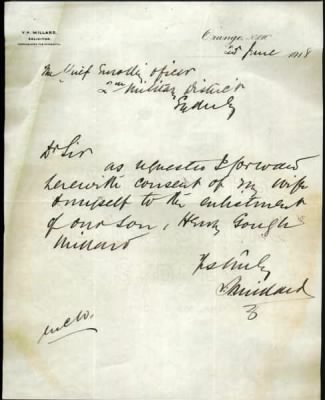 V. H. MILLARD,
SOLICITOR.
Orange, NSW
25 June 1918
The Chief Enrolling officer
2nd Military District
Sydney
Dr Sir
as requested I forward
herewith consent of my wife
& myself to the enlistment
of our son, Henry Gough
Millard
Yrs truly
Millard